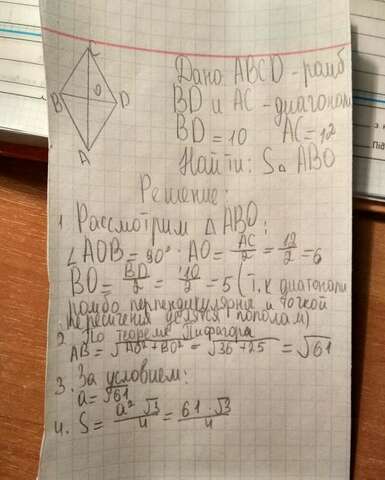 C
B
O
D
A
Дано: ABCD - ромб
BD и AC - диагонали
BD = 10 AC = 12
Найти: S△ ABO
Решение:
1. Рассмотрим △ ABO:
∠AOB = 90° AO = AC/2 = 12/2 = 6
BO = BD/2 = 10/2 = 5 (т.к диагонали
ромба перпендикулярны и точкой
пересечения делятся пополам)
2. По теореме Пифагора
AB = √AO² + BO² = √36 + 25 = √61
3. За условием:
a = √61
4. S = a² · √3/4 = 61 · √3/4